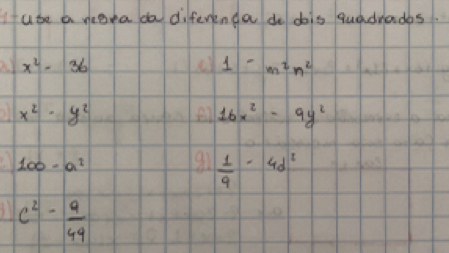 Use a regra da diferença de dois quadrados.
a) x² - 36
e) 1 - m²n²
b) x² - y²
f) 16x² - 9y²
c) 100 - a²
g) 1/9 - 4d²
d) c² - 9/49